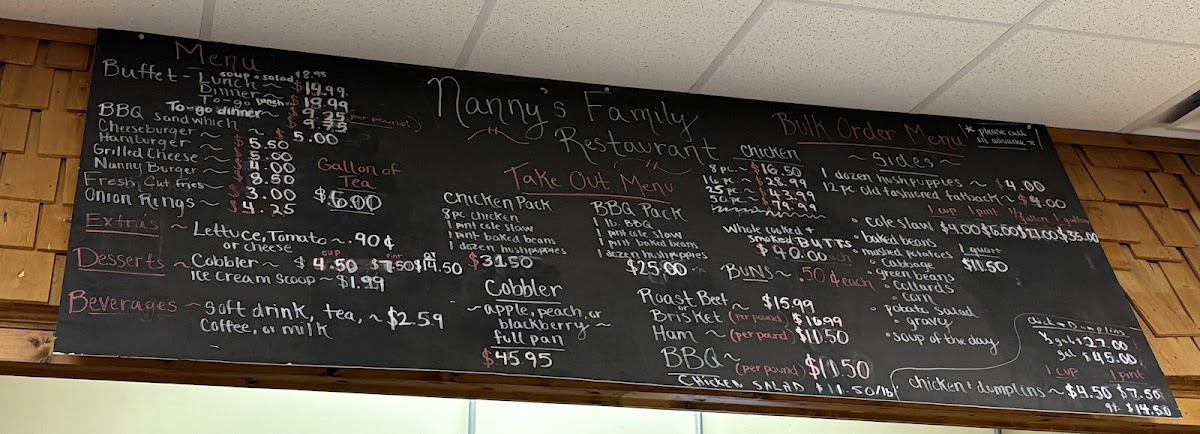 Menu
Buffet - soup + salad $8.95
Lunch ~ $14.99
Dinner ~ $19.99
To-go lunch ~ $9.25
To-go dinner ~ $9.75 (per pound)
BBQ Sandwich ~ $5.00
Cheeseburger ~ $5.50
Hamburger ~ $5.00
Grilled Cheese ~ $4.00
Nanny Burger ~ $8.50
Fresh Cut Fries ~ $3.00
Onion Rings ~ $4.25
Gallon of
Tea
$6.00
Extra's ~ Lettuce, Tomato ~ .90¢
or cheese
cup pint qt
Desserts ~ Cobbler ~ $4.50 $7.50 $14.50
ice cream scoop ~ $1.99
Beverages ~ soft drink, tea, ~ $2.59
coffee, or milk
Nanny's Family
Restaurant
Take Out Menu
Chicken Pack
8pc chicken
1 pint cole slaw
1 pint baked beans
1 dozen hushpuppies
$31.50
BBQ Pack
1 lb. BBQ
1 pint cole slaw
1 pint baked beans
1 dozen hushpuppies
$25.00
Cobbler
~ apple, peach, or
blackberry ~
full pan
$45.95
Bulk Order Menu
* please call
in advance *
Chicken
8 pc. ~ $16.50
16 pc. ~
25 pc ~
50 pc. ~
whole cooked +
smoked BUTTS
$40.00 each
BUNS ~ .50¢ each
Roast Beef ~ $15.99
or
Brisket (per pound) $16.99
Ham ~ (per pound) $10.50
BBQ ~ (per pound) $11.50
CHICKEN SALAD $11.50/lb
~ Sides ~
1 dozen hushpuppies ~ $4.00
12 pc old fashioned fatback ~ $4.00
1 cup 1 pint 1/2 gallon 1 gallon
• cole slaw $4.00 $6.00 $17.00 $35.00
• baked beans
• mashed potatoes
• cabbage
• green beans
• collards
• corn
• potato salad
• gravy
• soup of the day
1 quart
$11.50
Chick n Dumplins
1/2 gal $27.00
gal $45.00
1 cup 1 pint
chicken + dumplins ~ $4.50 $7.50
qt. $14.50